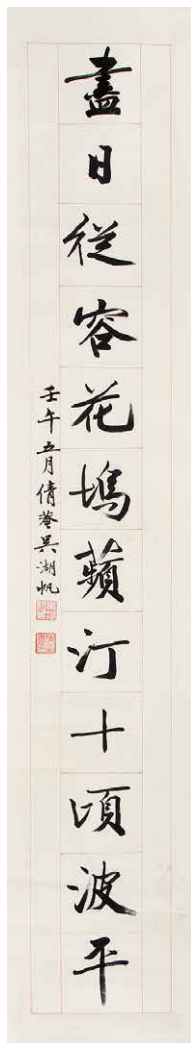 盡日從容花塢蘋汀十頃波平
壬午五月倩菴吳湖帆